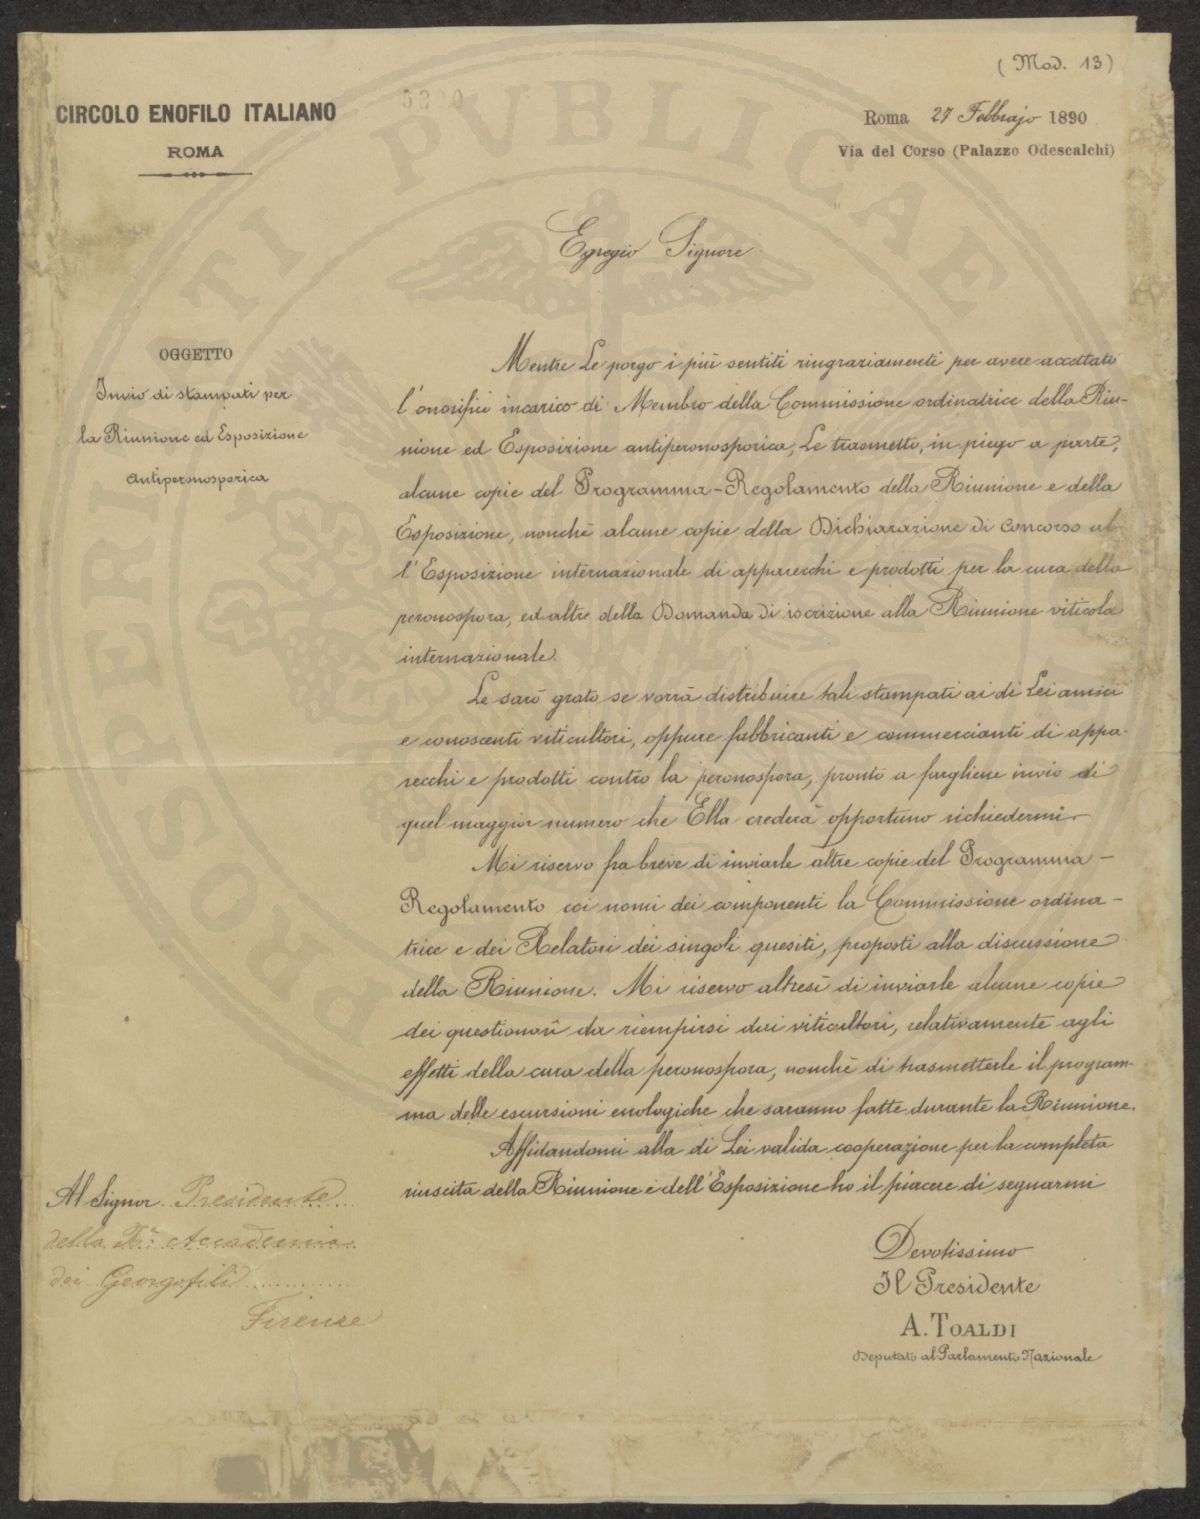 (Mod. 13)
CIRCOLO ENOFILO ITALIANO
ROMA
Roma 27 Febbrajo 1890
Via del Corso (Palazzo Odescalchi)
Egregio Signore
OGGETTO
Invio di stampati per
la Riunione ed Esposizione
Antiperonosporica
Mentre Le porgo i più sentiti ringraziamenti per avere accettato
l'onorifico incarico di Membro della Commissione ordinatrice della Riu-
nione ed Esposizione antiperonosporica, Le trasmetto, in piego a parte,
alcune copie del Programma-Regolamento della Riunione e della
Esposizione, nonchè alcune copie della Dichiarazione di concorso al-
l'Esposizione internazionale di apparecchi e prodotti per la cura della
peronospora, ed altre della Domanda di iscrizione alla Riunione viticola
internazionale.
Le sarò grato se vorrà distribuire tali stampati ai di Lei amici
e conoscenti viticultori, oppure fabbricanti e commercianti di appa-
recchi e prodotti contro la peronospora, pronto a fargliene invio di
quel maggior numero che Ella crederà opportuno richiedermi.
Mi riservo fra breve di inviarle altre copie del Programma-
Regolamento coi nomi dei componenti la Commissione ordina-
trice e dei Relatori dei singoli quesiti, proposti alla discussione
della Riunione. Mi riservo altresì di inviarle alcune copie
dei questionarî da riempirsi dai viticultori, relativamente agli
effetti della cura della peronospora, nonchè di trasmetterle il program-
ma delle escursioni enologiche che saranno fatte durante la Riunione.
Affidandomi alla di Lei valida cooperazione per la completa
riuscita della Riunione e dell'Esposizione ho il piacere di segnarmi
Al Signor Presidente
della R.ª Accademia
dei Georgofili
Firenze
Devotissimo
Il Presidente
A. TOALDI
Deputato al Parlamento Nazionale